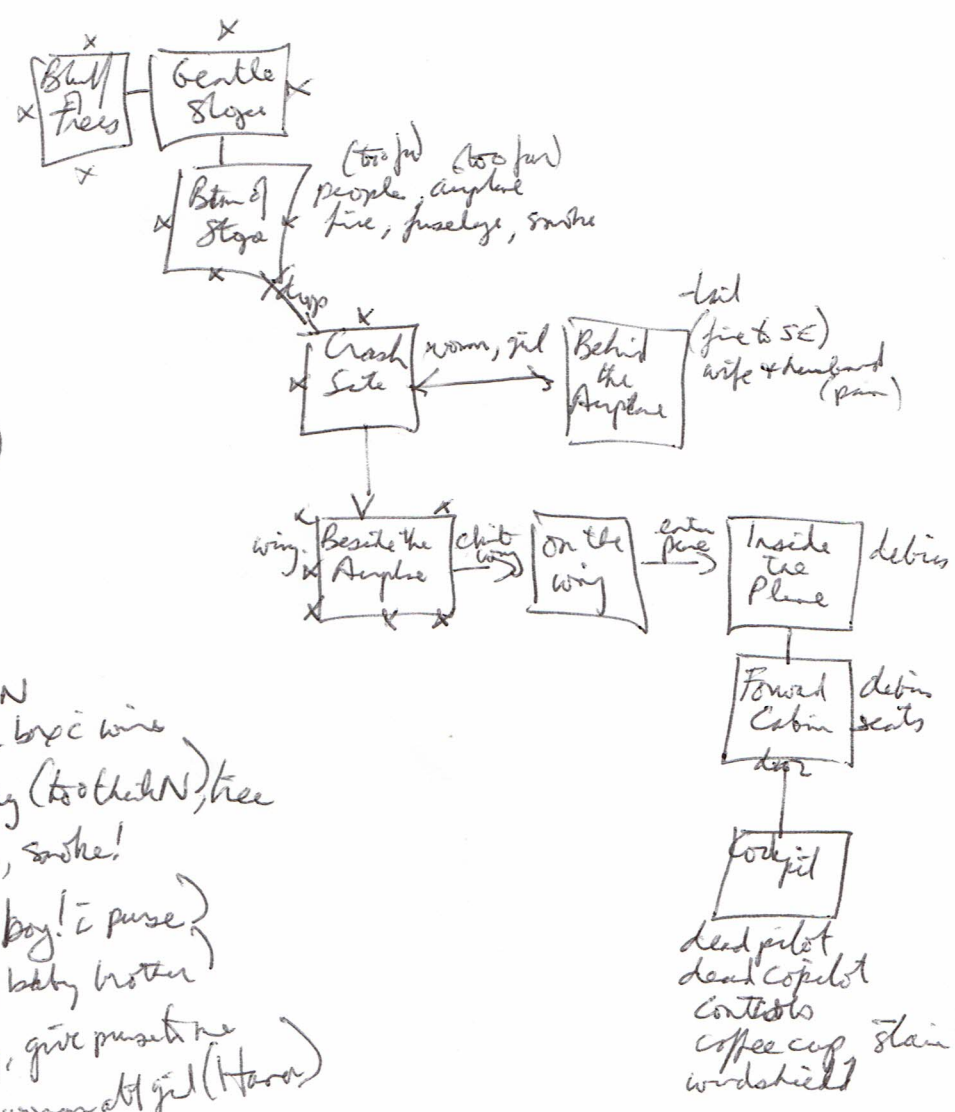 Bluff
of
Trees
Gentle
Slope
(too far) (too far)
people, airplane
fire, fuselage, smoke
Btm of
Slope
Crash
Site
woman, girl
Behind
the
Airplane
tail
(fire to SE)
wife + husband
wing
Beside the
Airplane
climb
wing
On the
wing
enter
plane
Inside
the
Plane
debris
Forward
Cabin
debris
seats
door
Cockpit
dead pilot
dead copilot
controls
coffee cup, stain
windshield
N
box c̄ wires
tree
, smoke!
boy! c̄ purse
baby brother
, give purse to me
girl